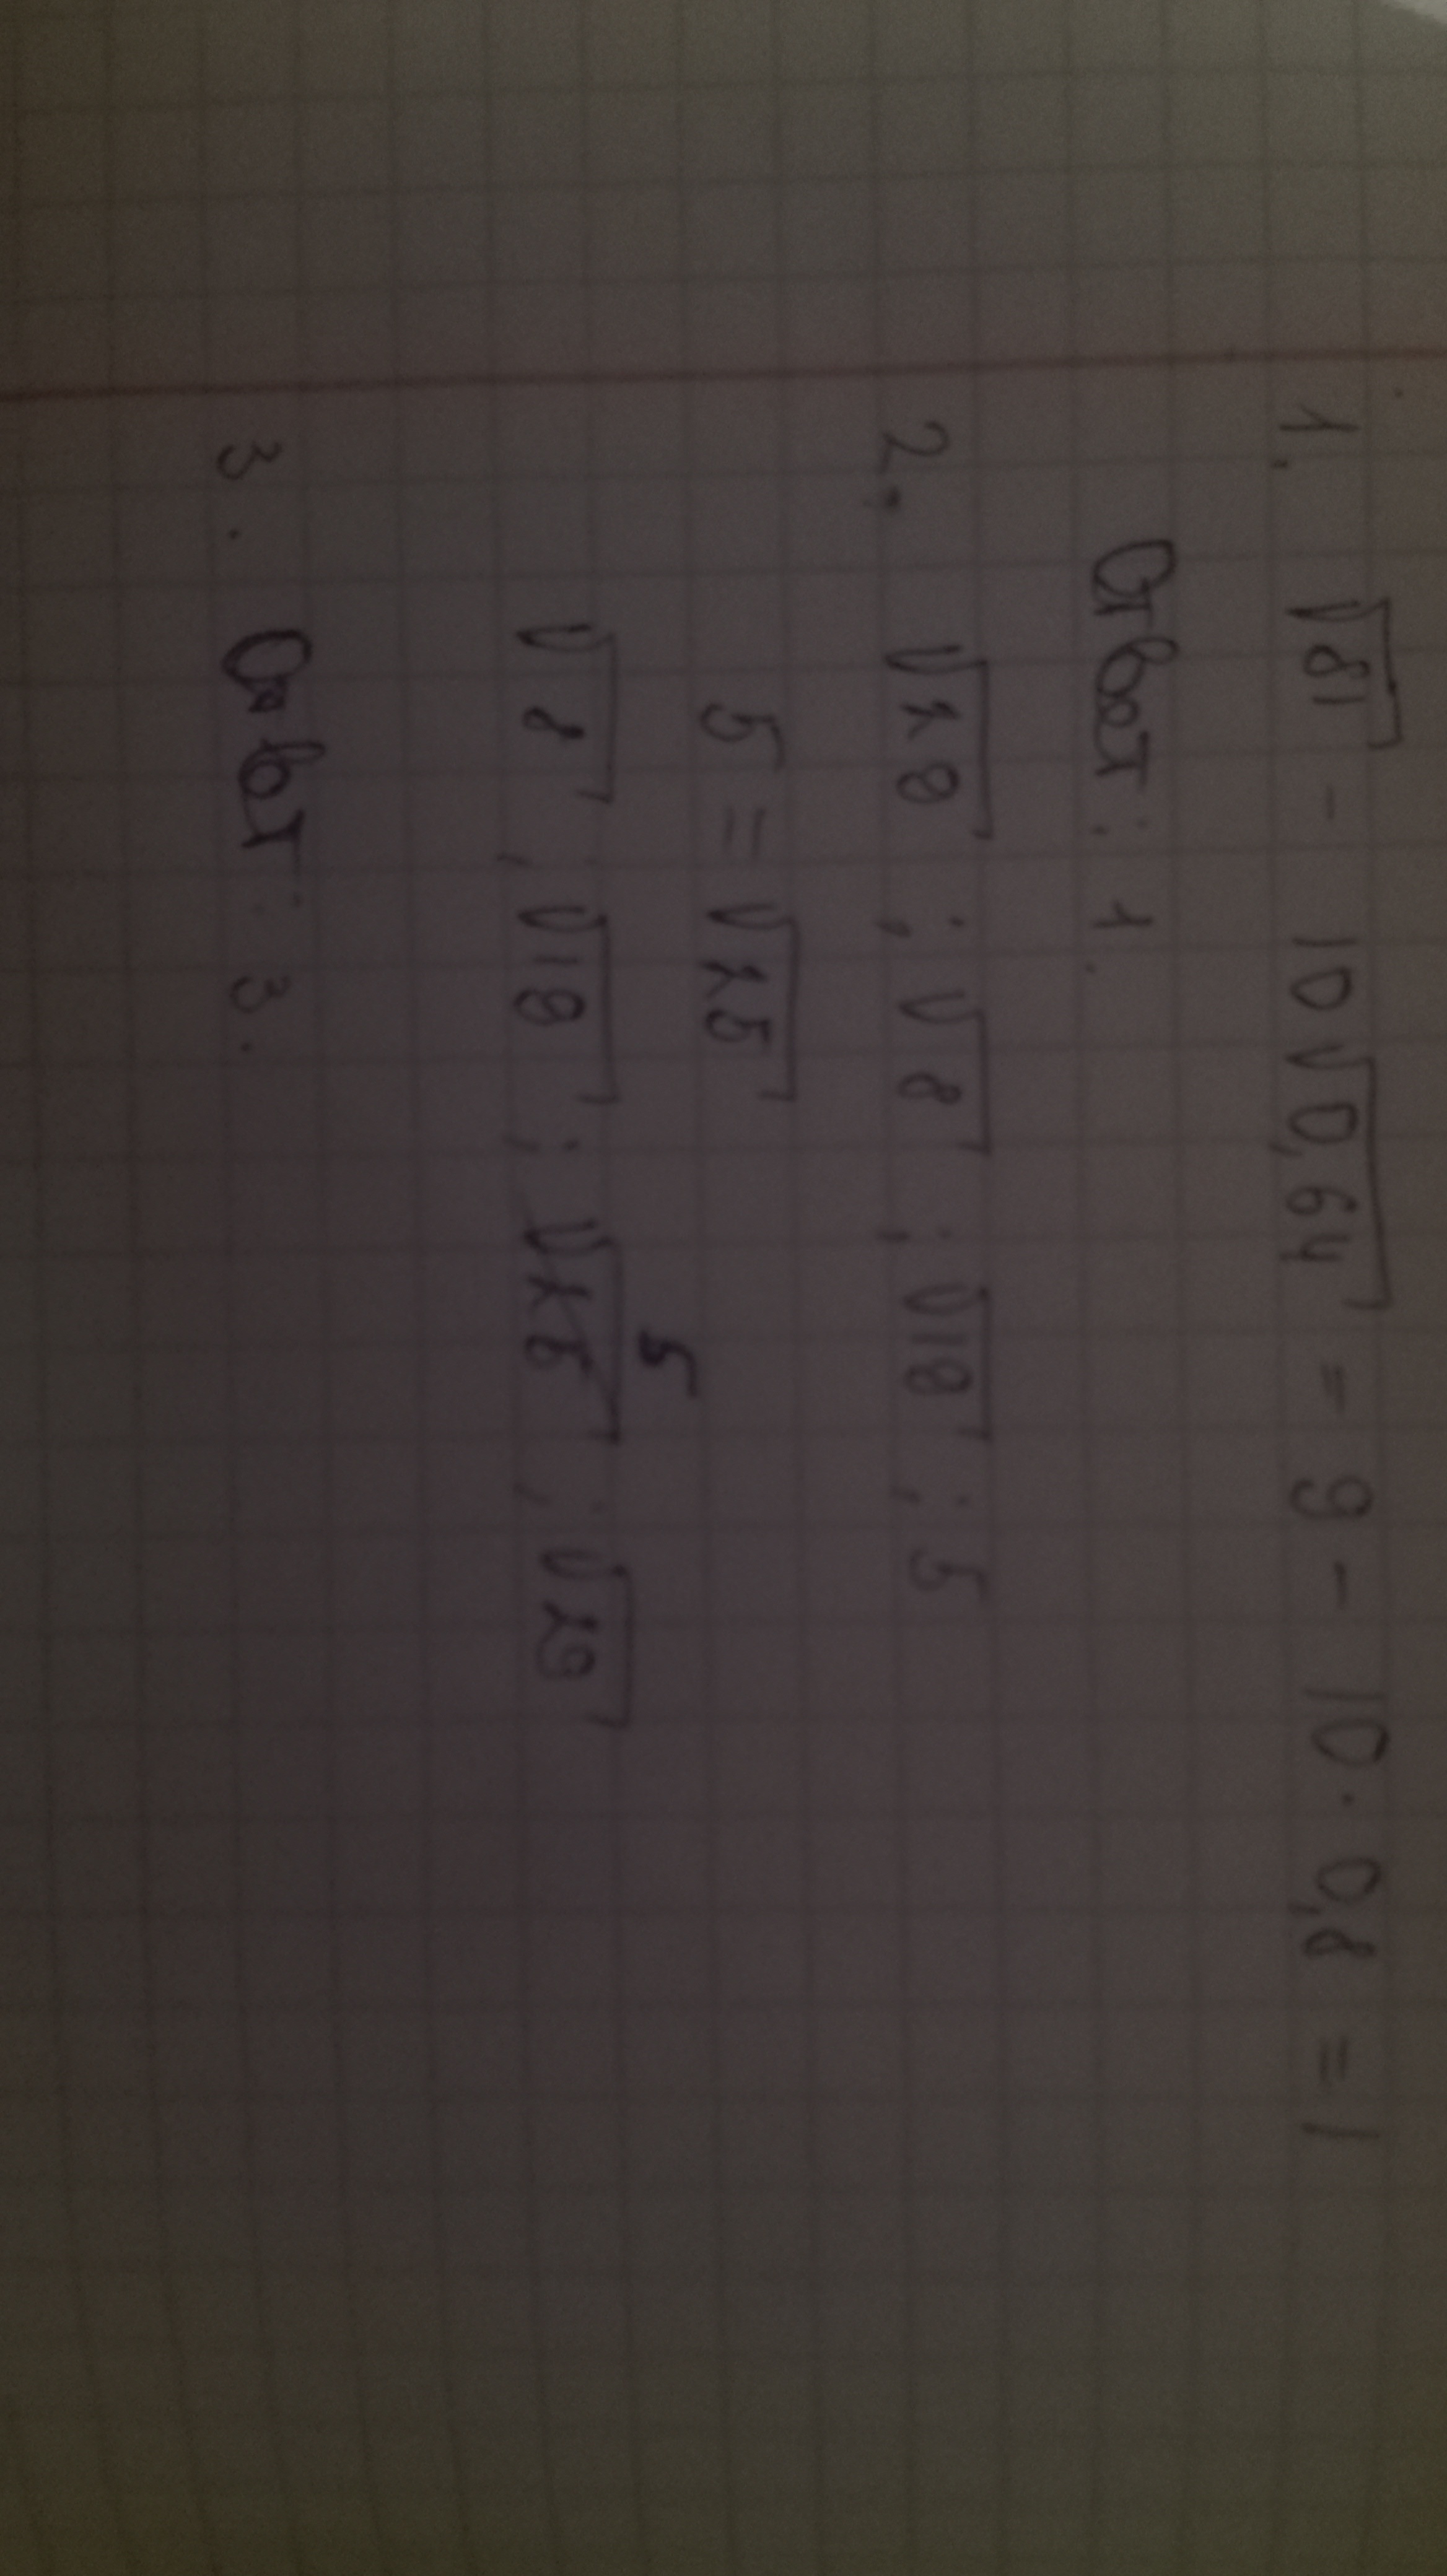 1. √81 - 10√0,64 = 9 - 10 · 0,8 = 1
Ответ: 1.
2. √28 ; √8 ; √18 ; 5
5 = √25
5
√8 ; √18 ; √25 ; √28
3. Ответ: 3.